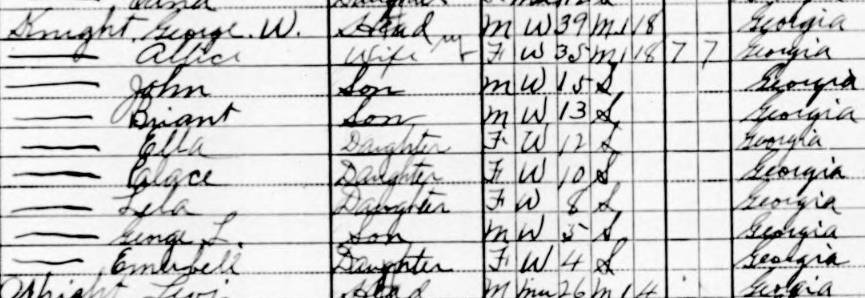 Daughter
Knight. George. W. Head M W 39 M1 18 Georgia
— Allice Wife F W 35 M1 18 7 7 Georgia
— John Son M W 15 S Georgia
— Briant Son M W 13 S Georgia
— Ella Daughter F W 12 S Georgia
— Daughter F W 10 S Georgia
— Lela Daughter F W 8 S Georgia
— George L. Son M W 5 S Georgia
— Emerbell Daughter F W 4 S Georgia
Wright Levi Head M Mu 26 M1 4 Georgia